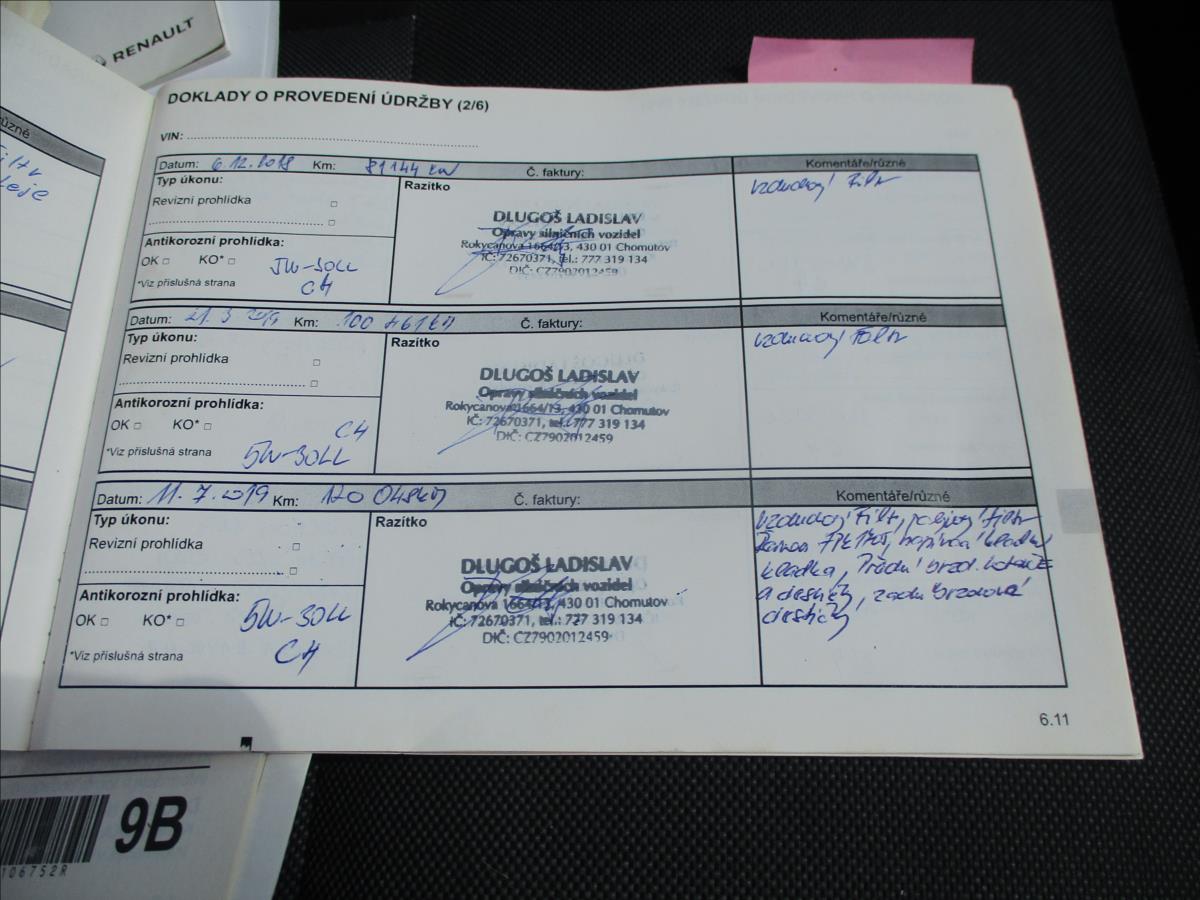 RENAULT
různé
DOKLADY O PROVEDENÍ ÚDRŽBY (2/6)
VIN:
Datum: 6.12.2018 Km: 81144 km Č. faktury:
Komentáře/různé
Typ úkonu:
Revizní prohlídka
Antikorozní prohlídka:
OK KO*
*Viz příslušná strana
5W-30LL
C4
Razítko
DLUGOŠ LADISLAV
Opravy silničních vozidel
Rokycanova 1664/13, 430 01 Chomutov
IČ: 72670371, tel.: 777 319 134
DIČ: CZ7902012459
vzduchový Filtr
Datum: 21. 3 2019 Km: 100 Č. faktury:
Komentáře/různé
Typ úkonu:
Revizní prohlídka
Antikorozní prohlídka:
OK KO*
*Viz příslušná strana
C4
5W-30LL
Razítko
DLUGOŠ LADISLAV
Opravy silničních vozidel
Rokycanova 1664/13, 430 01 Chomutov
IČ: 72670371, tel.: 777 319 134
DIČ: CZ7902012459
vzduchový Filtr
Datum: 11. 7. 2019 Km: 120 Č. faktury:
Komentáře/různé
Typ úkonu:
Revizní prohlídka
Antikorozní prohlídka:
OK KO*
*Viz příslušná strana
5W-30LL
C4
Razítko
DLUGOŠ LADISLAV
Opravy silničních vozidel
Rokycanova 1664/13, 430 01 Chomutov
IČ: 72670371, tel.: 777 319 134
DIČ: CZ7902012459
vzduchový Filtr, pylový filtr
napínací kladka
kladka, Přední brzd. kotouče
a destičky, zadní brzdové
destičky
6.11
9B
106752R